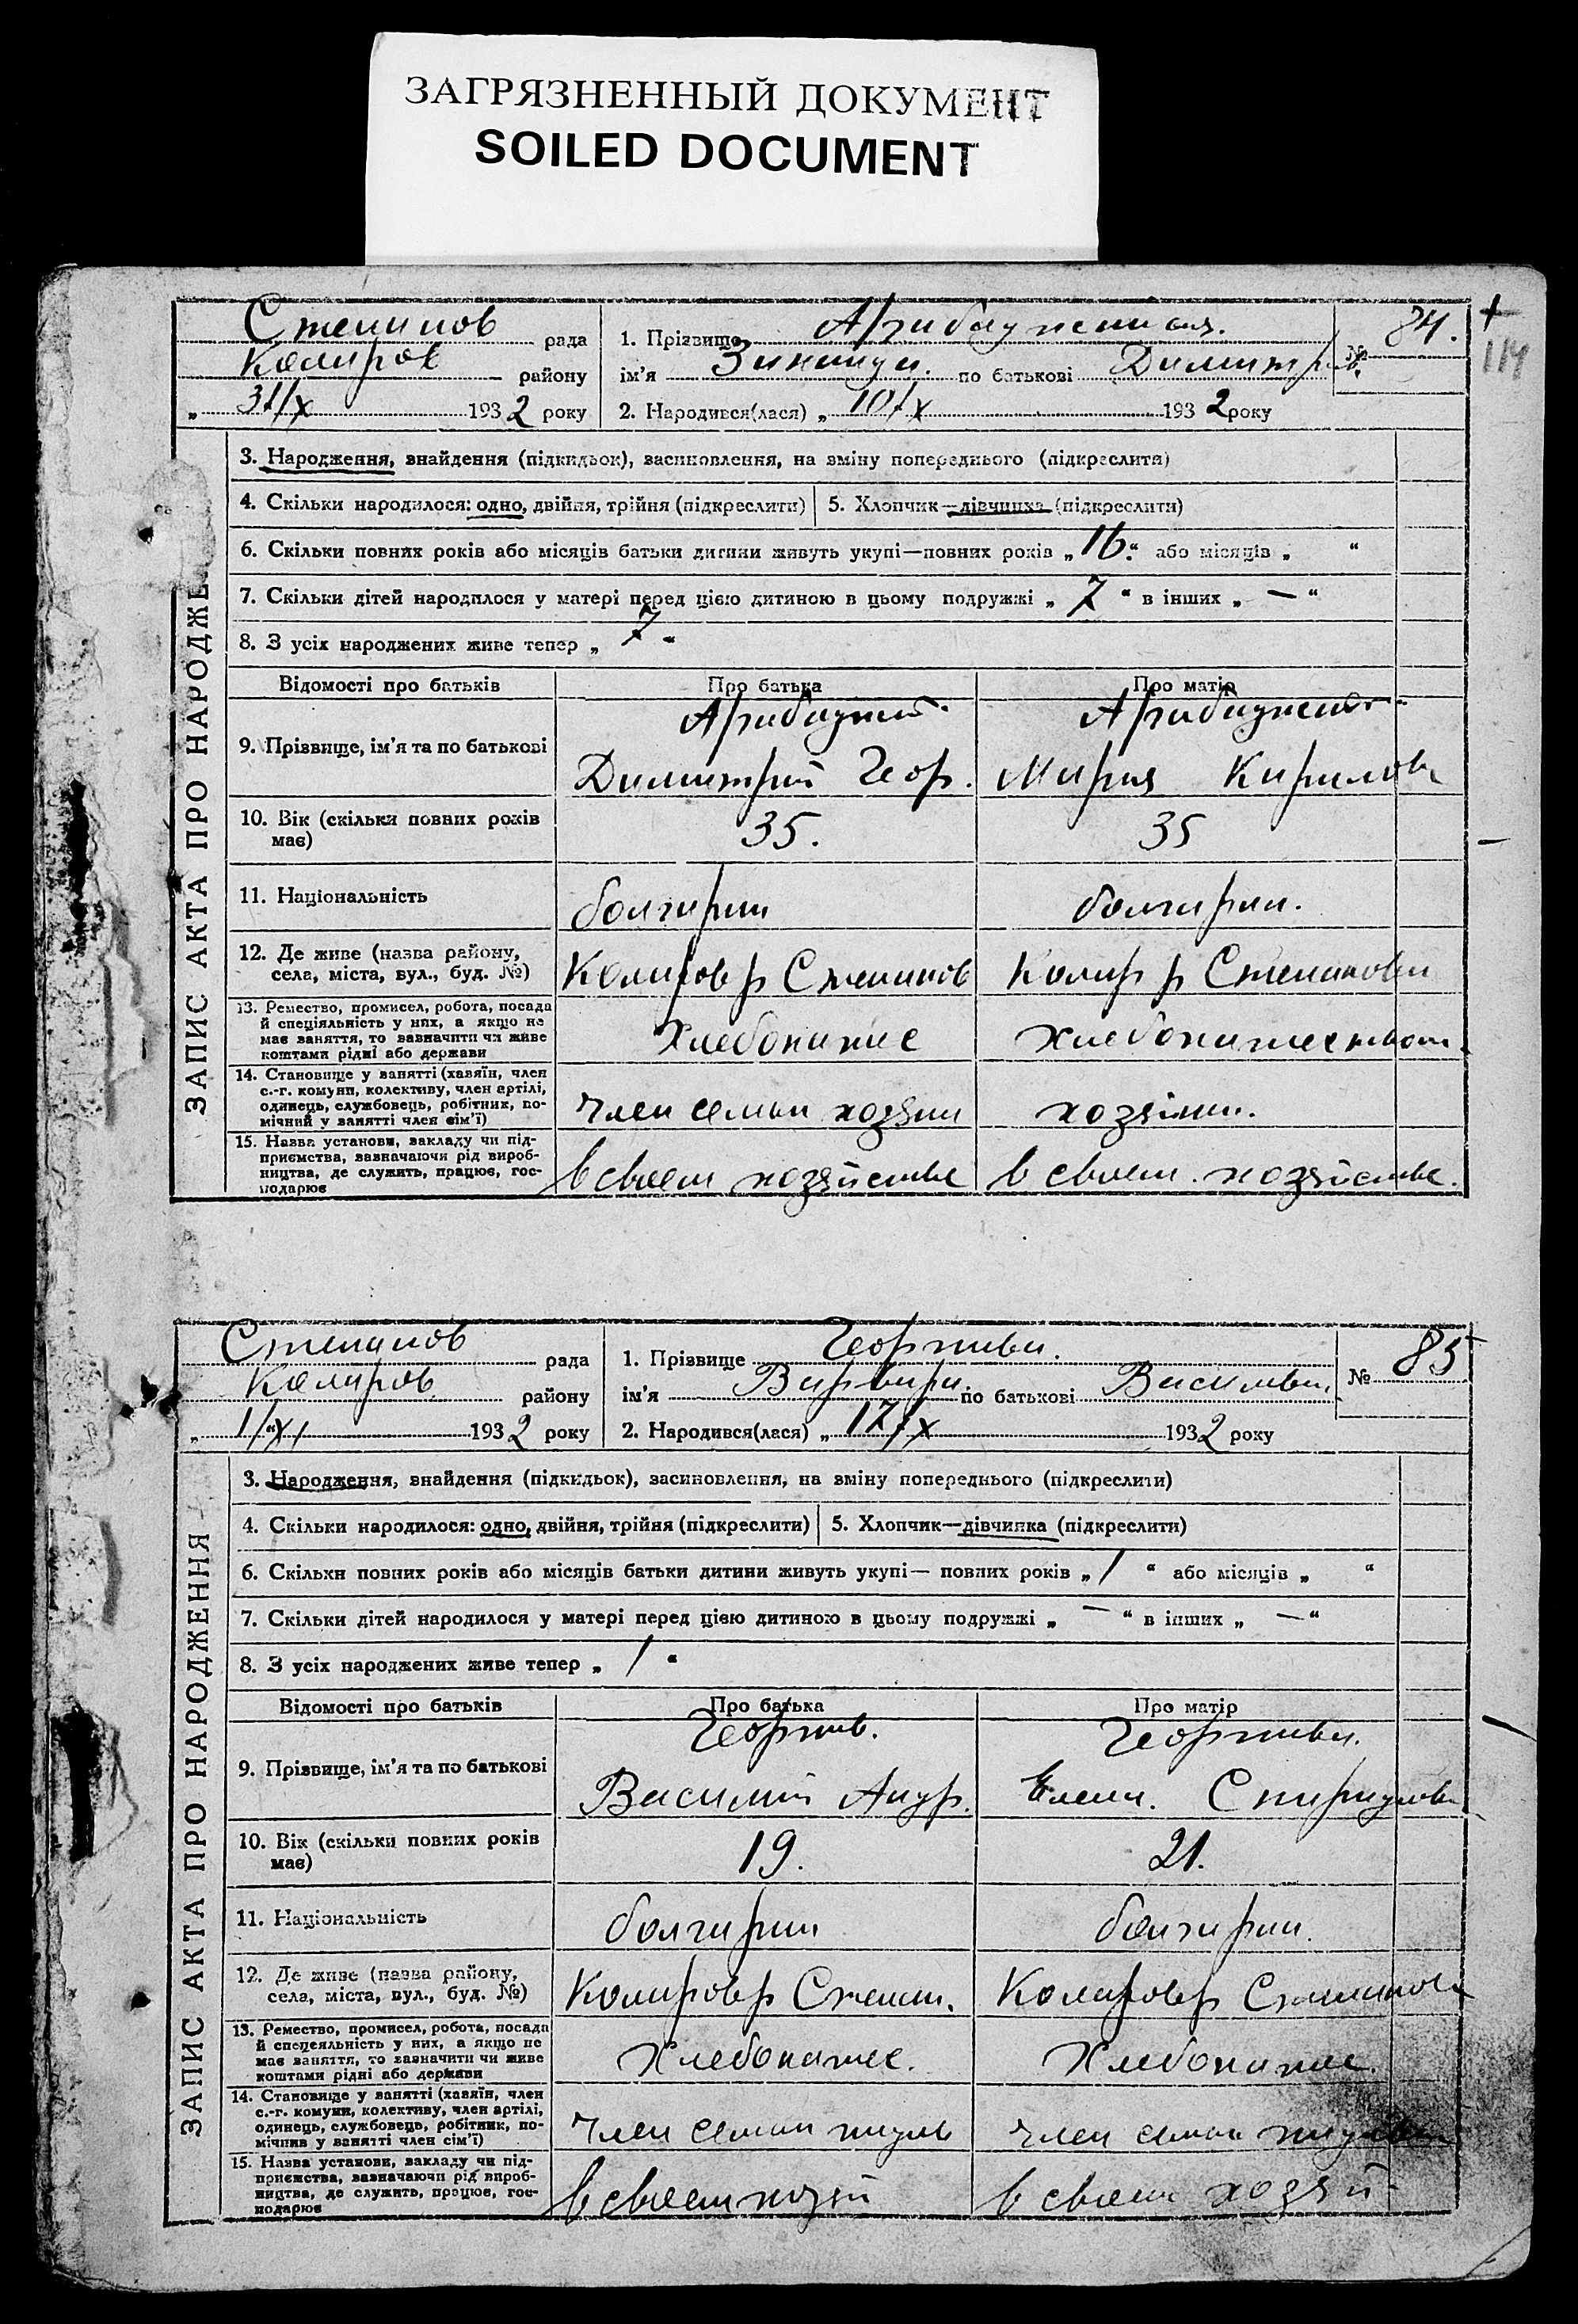 ЗАГРЯЗНЕННЫЙ ДОКУМЕНТ
SOILED DOCUMENT
Степанов рада
Коларов району
„ 31/X 1932 року
1. Прізвище
ім'я Зинаида. по батькові Димитр
2. Народився(лася) „ 10/X 1932 року
№ 84.
114
ЗАПИС АКТА ПРО НАРОДЖЕ
3. Народження, внайдення (підкидьок), засиновлення, на зміну попереднього (підкреслити)
4. Скільки народилося: одно, двійня, трійня (підкреслити) 5. Хлопчик—дівчинка (підкреслити)
6. Скільки повних років або місяців батьки дитини живуть укупі—повних років „ 16 “ або місяців „ “
7. Скільки дітей народилося у матері перед цією дитиною в цьому подружжі „ 7 “ в інших „ — “
8. З усіх народжених живе тепер „ 7 “
Відомості про батьків Про батька Про матір
9. Прізвище, ім'я та по батькові
Димитрий Геор. Мария Кирилов
10. Вік (скільки повних років має) 35. 35
11. Національність болгарин болгарин.
12. Де живе (назва району, села, міста, вул., буд. №) Коларов р Степанов Колар р Степановк
13. Ремество, промисел, робота, посада
й спеціяльність у них, а якщо не
має заняття, то зазначити чи живе
коштами рідні або держави
Хлебопашес Хлебопашеством
14. Становище у занятті (хазяїн, член
с.-г. комуни, колективу, член артілі,
одинець, службовець, робітник, по-
мічний у занятті член сім'ї)
член семьи хозяин хозяин.
15. Назва установи, закладу чи під-
приємства, зазначаючи рід вироб-
ництва, де служить, працює, гос-
подарює
в своем хозяйстве в своем. хозяйстве.
Степанов рада
Коларов району
„ 1/XI 1932 року
1. Прізвище Георгиева.
ім'я Варвара по батькові Васильев
2. Народився(лася) „ 17/X 1932 року
№ 85
ЗАПИС АКТА ПРО НАРОДЖЕННЯ
3. Народження, внайдення (підкидьок), засиновлення, на зміну попереднього (підкреслити)
4. Скільки народилося: одно, двійня, трійня (підкреслити) 5. Хлопчик—дівчинка (підкреслити)
6. Скільки повних років або місяців батьки дитини живуть укупі— повних років „ 1 “ або місяців „ “
7. Скільки дітей народилося у матері перед цією дитиною в цьому подружжі „ — “ в інших „ — “
8. З усіх народжених живе тепер „ 1 “
Відомості про батьків Про батька Про матір
Георгиев. Георгиева.
9. Прізвище, ім'я та по батькові
Василий Андр. Елена. Спиридонов
10. Вік (скільки повних років має) 19. 21.
11. Національність болгарин болгарин.
12. Де живе (назва району, села, міста, вул., буд. №) Коларов р Степан. Коларов р Степанов
13. Ремество, промисел, робота, посада
й спецеяльність у них, а якщо не
має заняття, то зазначити чи живе
коштами рідні або держави
Хлебопашес. Хлебопашес.
14. Становище у занятті (хазяїн, член
с.-г. комуни, колективу, член артілі,
одинець, службовець, робітник, по-
мічний у занятті член сім'ї)
член семьи член семьи
15. Назва установи, закладу чи під-
приємства, зазначаючи рід вироб-
ництва, де служить, працює, гос-
подарює
в своем хозяй в своем хозяй-